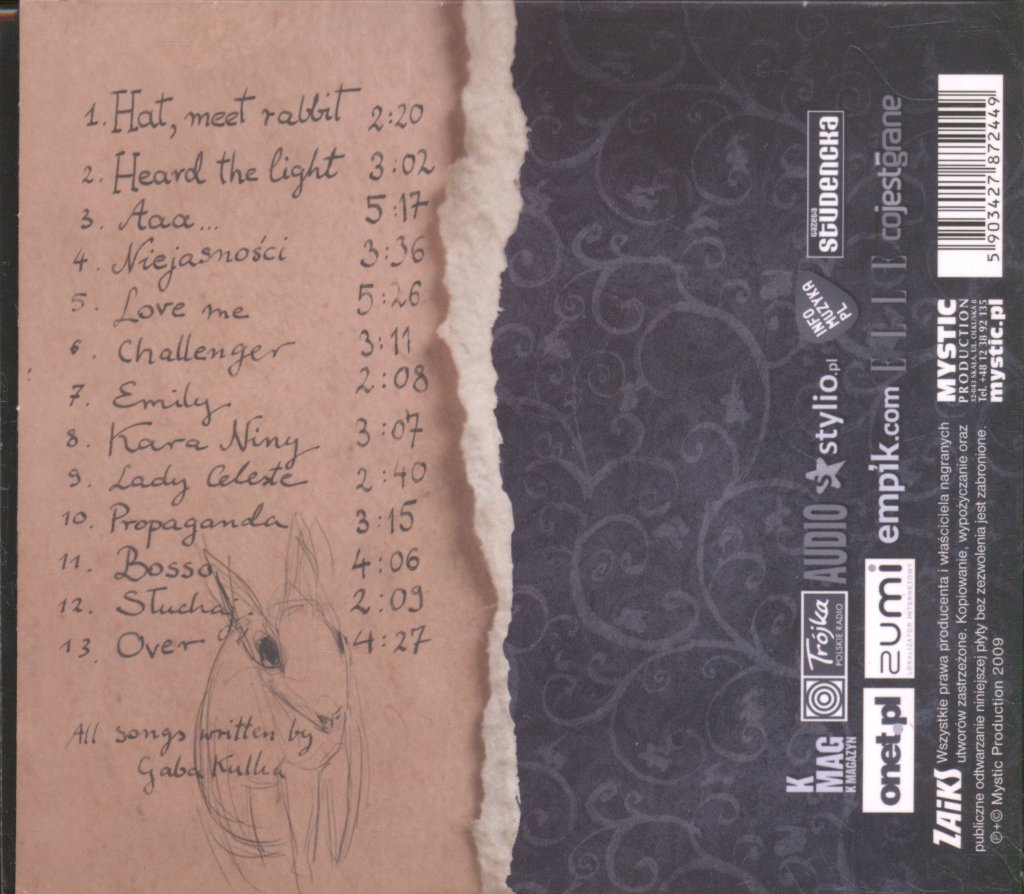 1. Hat, meet rabbit 2:20
2. Heard the light 3:02
3. Aaa... 5:17
4. Niejasności 3:36
5. Love me 5:26
6. Challenger 3:11
7. Emily 2:08
8. Kara Niny 3:07
9. Lady Celeste 2:40
10. Propaganda 3:15
11. Bosso 4:06
12. Słuchaj 2:09
13. Over 4:27
All songs written by
Gaba Kulka
K
MAG
K MAGAZYN
Trójka
POLSKIE RADIO
AUDIO
stylio.pl
INFO
MUZYKA
PL
gazeta
studencka
onet.pl
zumi
LOKALIZATOR INTERNETOWY
empik.com
ELLE
cojestgrane
ZAiKS
Wszystkie prawa producenta i właściciela nagranych
utworów zastrzeżone. Kopiowanie, wypożyczanie oraz
publiczne odtwarzanie niniejszej płyty bez zezwolenia jest zabronione.
℗+© Mystic Production 2009
MYSTIC
PRODUCTION
32-043 SKAŁA, UL. OLKUSKA 8
Tel. +48 12 38 92 135
mystic.pl
5 903427 872449